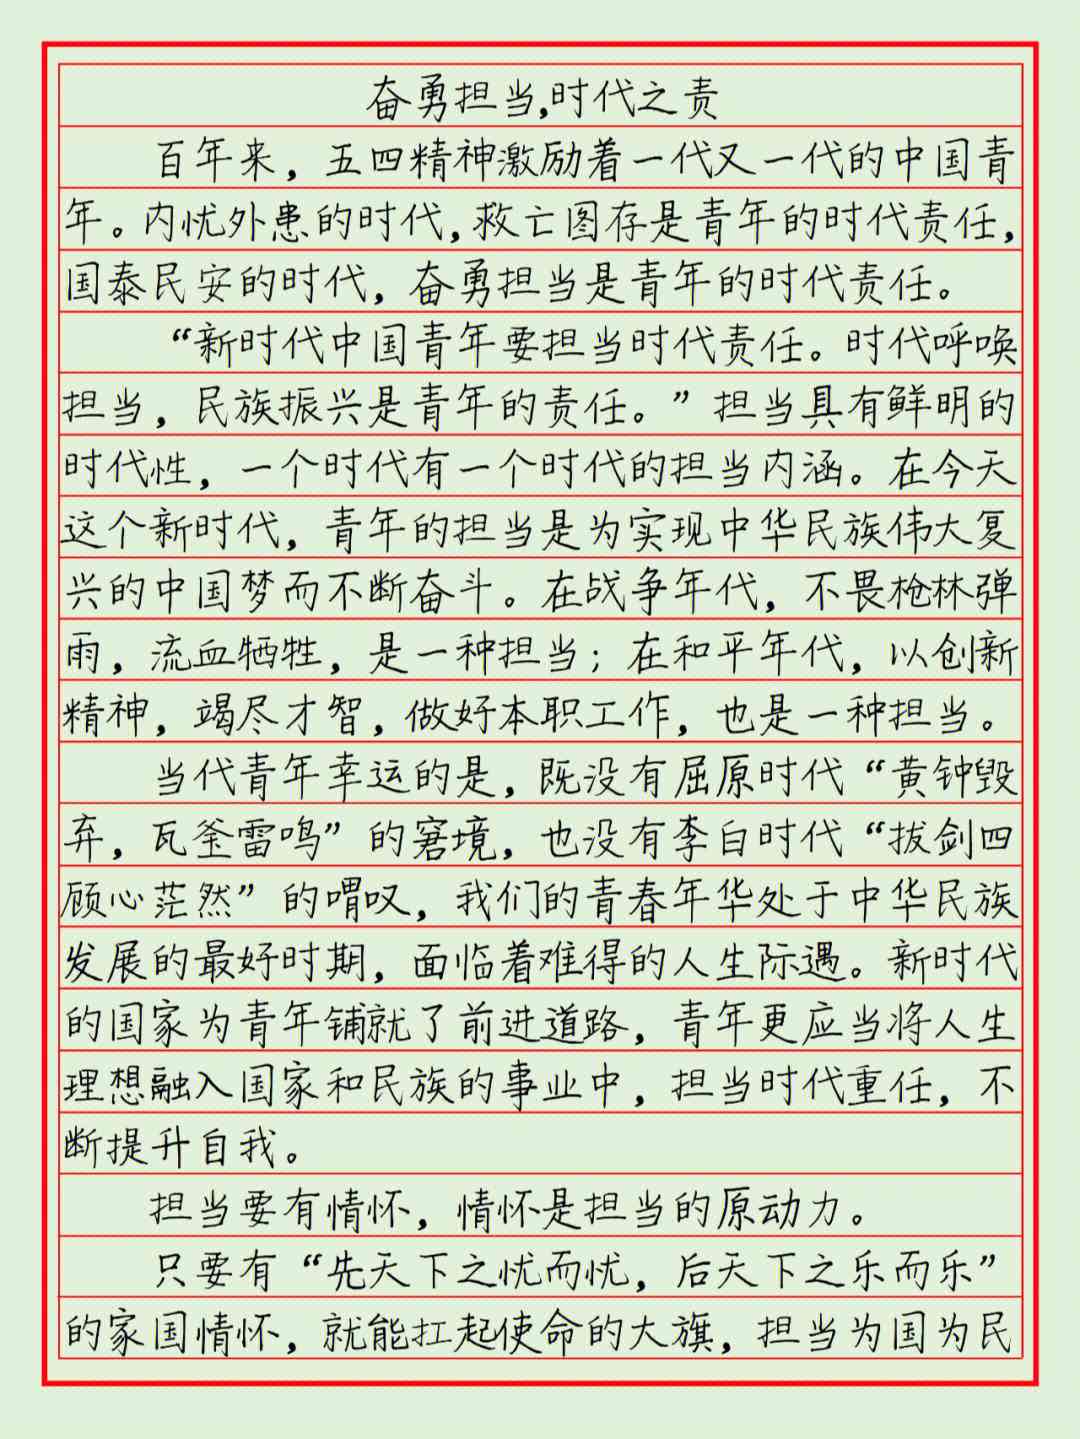 奋勇担当,时代之责
百年来，五四精神激励着一代又一代的中国青
年。内忧外患的时代，救亡图存是青年的时代责任，
国泰民安的时代，奋勇担当是青年的时代责任。
“新时代中国青年要担当时代责任。时代呼唤
担当，民族振兴是青年的责任。”担当具有鲜明的
时代性，一个时代有一个时代的担当内涵。在今天
这个新时代，青年的担当是为实现中华民族伟大复
兴的中国梦而不断奋斗。在战争年代，不畏枪林弹
雨，流血牺牲，是一种担当；在和平年代，以创新
精神，竭尽才智，做好本职工作，也是一种担当。
当代青年幸运的是，既没有屈原时代“黄钟毁
弃，瓦釜雷鸣”的窘境，也没有李白时代“拔剑四
顾心茫然”的喟叹，我们的青春年华处于中华民族
发展的最好时期，面临着难得的人生际遇。新时代
的国家为青年铺就了前进道路，青年更应当将人生
理想融入国家和民族的事业中，担当时代重任，不
断提升自我。
担当要有情怀，情怀是担当的原动力。
只要有“先天下之忧而忧，后天下之乐而乐”
的家国情怀，就能扛起使命的大旗，担当为国为民